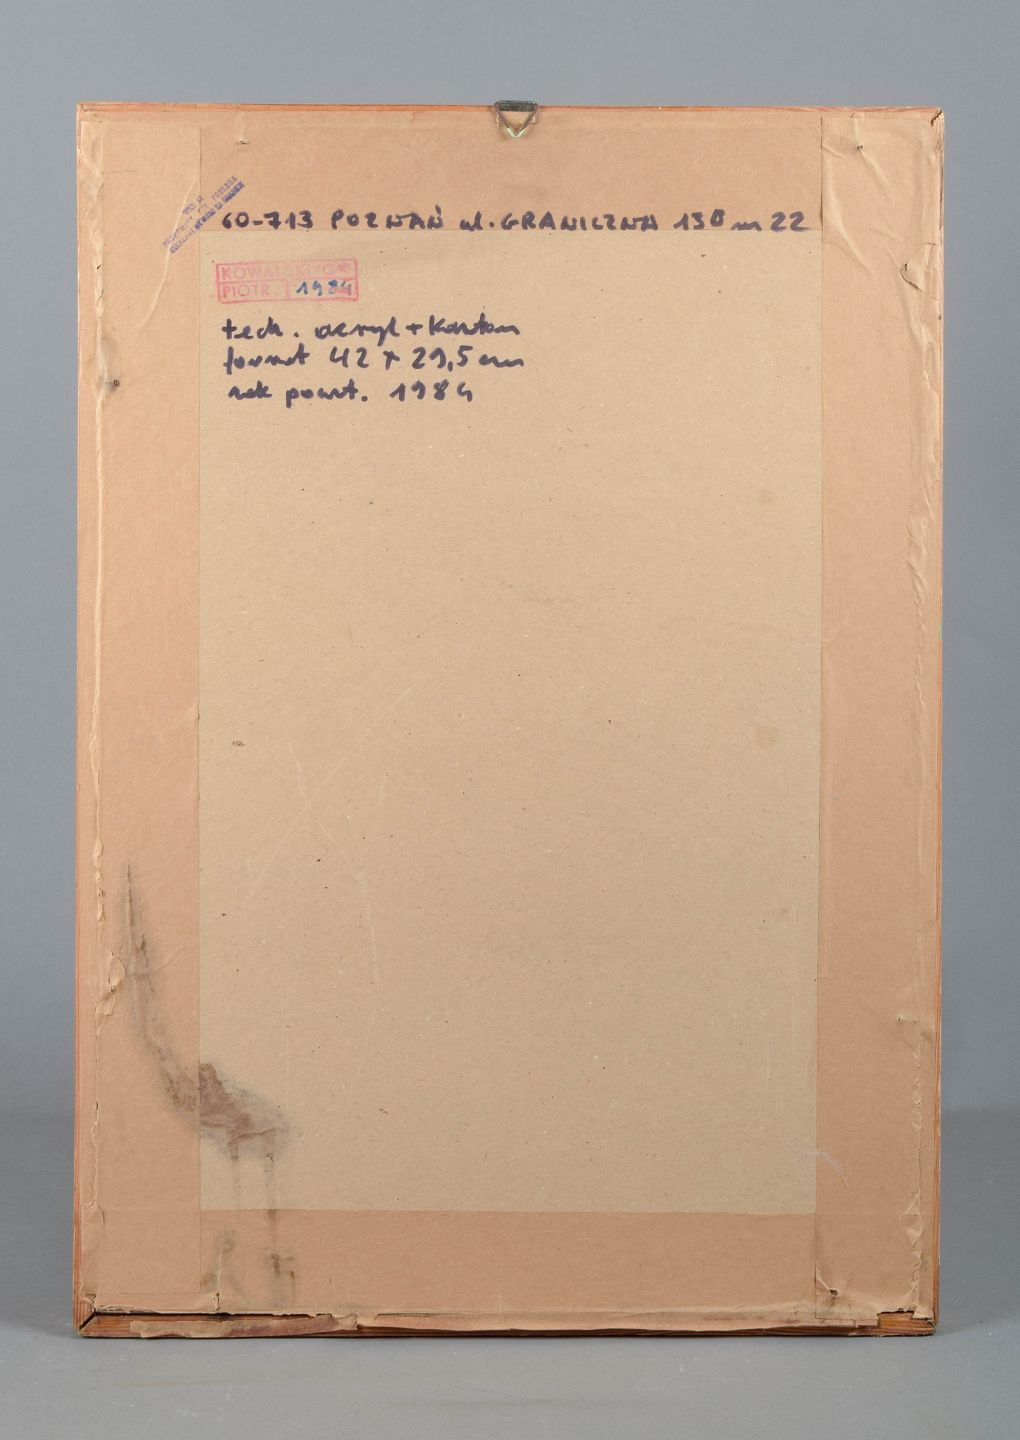 60-713 POZNAŃ ul. GRANICZNA 13B m 22
KOWALSKI
PIOTR 1984
tech. akryl + karton
format 42 x 29,5 cm
rok powst. 1984